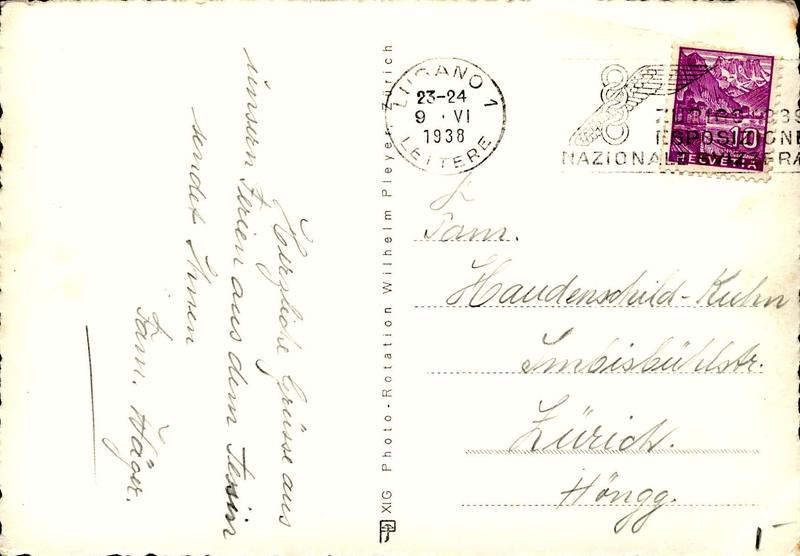 Herzliche Grüsse aus
unsern Ferien aus dem Tessin
sendet Ihnen
Fam. Häger.
XIG Photo-Rotation Wilhelm Pleyer, Zürich
LUGANO 1
23-24
9 . VI
1938
LETTERE
ZURIGO 1939
ESPOSIZIONE
NAZIONALE SVIZZERA
10
HELVETIA
Fam.
Haudenschild-Kuhn
Imbisbühlstr.
Zürich.
Höngg.
1-